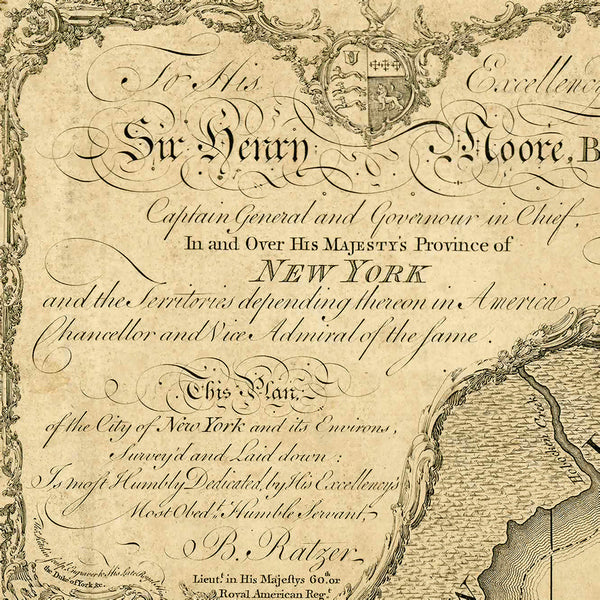 To His Excellency
Sir Henry Moore, B
Captain General and Governour in Chief,
In and Over HIS MAJESTY'S Province of
NEW YORK
and the Territories depending thereon in America
Chancellor and Vice Admiral of the same.
This Plan,
of the City of New York and its Environs,
Survey'd and Laid down:
Is most Humbly Dedicated, by His Excellency's
Most Obedt. Humble Servant,
B. Ratzer
Lieut. in His Majestys 60th. or
Royal American Regt.
Engraver to His late Royal
the Duke of York &c.
Creek